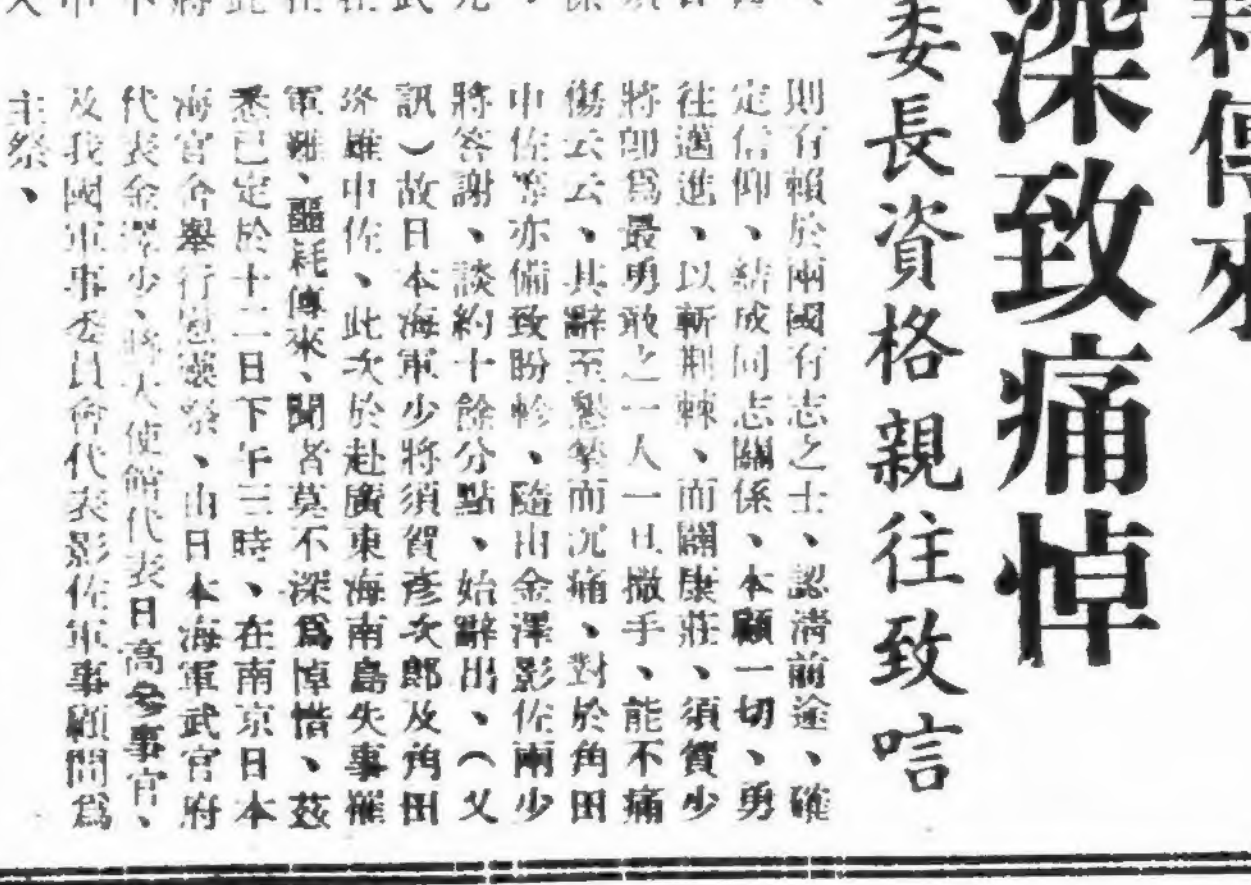 傳來
深致痛悼
委長資格親往致唁
則有賴於兩國有志之士、認清前途、確
定信仰、結成同志關係、本願一切、勇
往邁進、以斬荆棘、而闢康莊、須賀少
將卽爲最勇敢之一人一旦撒手、能不痛
傷云云、其辭至懇摯而沉痛、對於角田
中佐等亦備致盼軫、隨由金澤影佐兩少
將答謝、談約十餘分點、始辭出、（又
訊）故日本海軍少將須賀彥次郎及角田
雄中佐、此次於赴廣東海南島失事罹
軍難、噩耗傳來、聞者莫不深爲悼惜、茲
悉已定於十二日下午三時、在南京日本
海官舍舉行慰靈祭、由日本海軍武官府
代表金澤少將、大使館代表日高參事官、
及我國軍事委員會代表影佐軍事顧問爲
主祭、